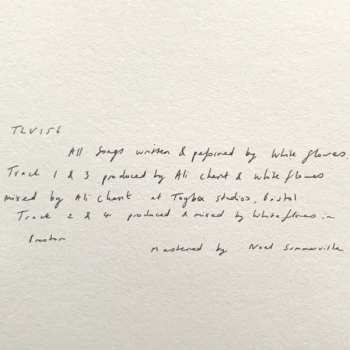 TLV156
All songs written & performed by White flowers.
Track 1 & 3 produced by Ali Chant & White flowers
mixed by Ali Chant at Toybox Studios, Bristol
Track 2 & 4 produced & mixed by White flowers in
Preston
Mastered by Noel Summerville